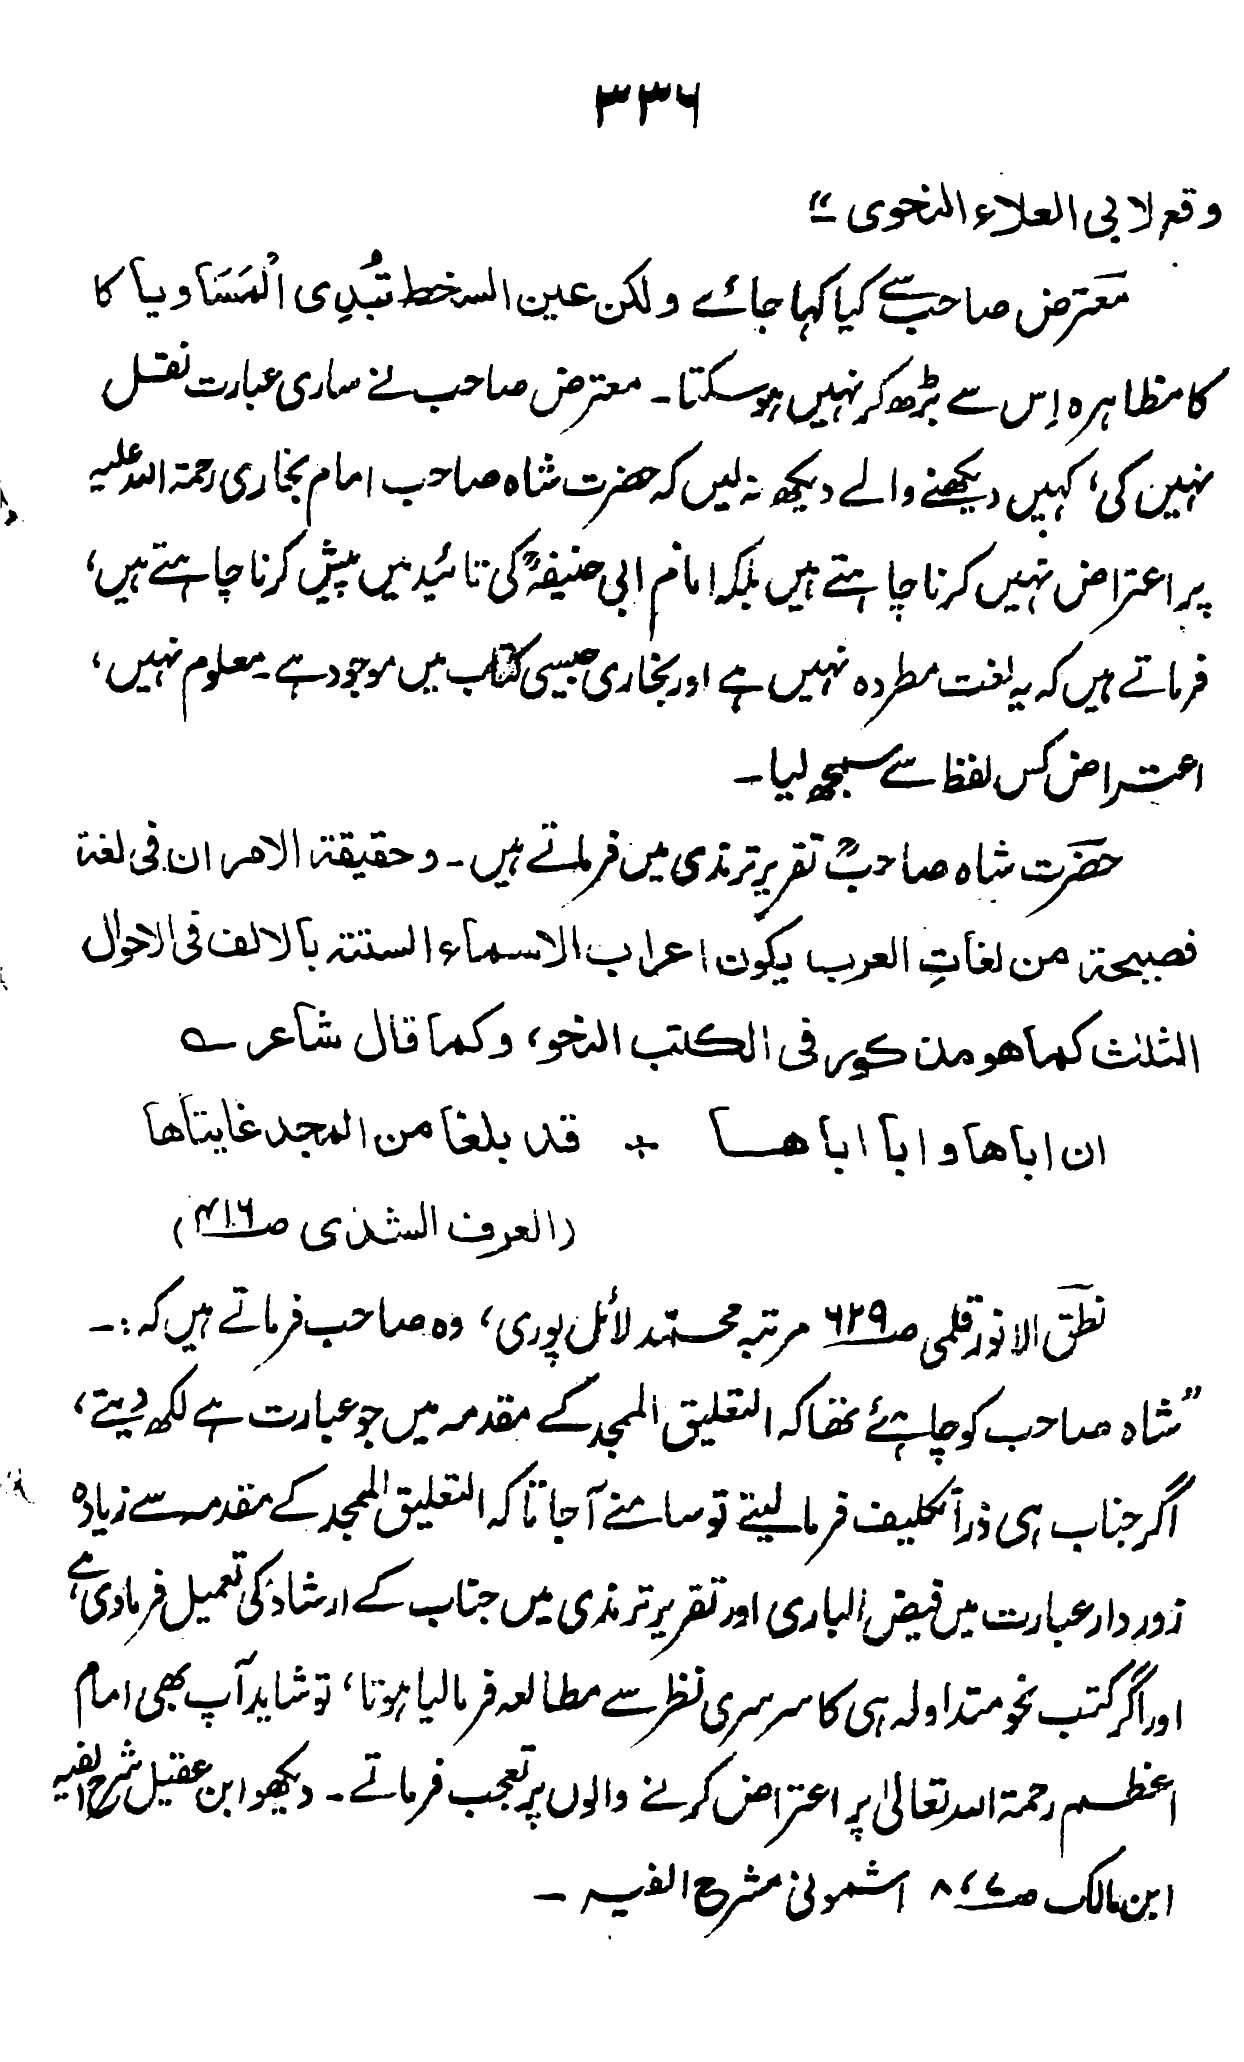 ۳۳۶
وقع لابی العلاء النحوی ۔"
معترض صاحب سے کیا کہا جائے ولکن عین السخط تُبْدِی الْمَسَاویا کا
کا مظاہرہ اِس سے بڑھ کر نہیں ہو سکتا۔ معترض صاحب نے ساری عبارت نقل
نہیں کی، کہیں دیکھنے والے دیکھ نہ لیں کہ حضرت شاہ صاحب امام بخاری رحمۃ اللہ علیہ
پر اعتراض نہیں کرنا چاہتے ہیں بلکہ امام ابی حنیفہؒ کی تائید میں پیش کرنا چاہتے ہیں،
فرماتے ہیں کہ یہ لغت مطردہ نہیں ہے اور بخاری جیسی کتاب میں موجود ہے۔ معلوم نہیں،
اعتراض کس لفظ سے سمجھ لیا۔
حضرت شاہ صاحبؒ تقریر ترمذی میں فرماتے ہیں۔ وحقیقۃ الامر ان فی لغۃ
فصیحۃ من لغاتِ العرب یکون اعراب الاسماء الستۃ بالالف فی الاحوال
الثلٰث کما ھو مذکور فی الکتب النحو، وکما قال شاعر ؎
ان اباھا وابا اباھا + قد بلغا من المجد غایتاھا
(العرف الشذی صـ۴۱۶)
نطق الانور قلمی صـ۶۲۹ مرتبہ محمّد لائل پوری، وہ صاحب فرماتے ہیں کہ:۔
"شاہ صاحب کو چاہئے تھا کہ التعلیق الممجد کے مقدمہ میں جو عبارت ہے لکھ دیتے،
اگر جناب ہی ذرا تکلیف فرما لیتے تو سامنے آ جاتا کہ التعلیق الممجد کے مقدمہ سے زیادہ
زور دار عبارت میں فیض الباری اور تقریر ترمذی میں جناب کے ارشاد کی تعمیل فرمادی ہے،
اور اگر کتب نحو متداولہ ہی کا سرسری نظر سے مطالعہ فرما لیا ہوتا، تو شاید آپ بھی امام
اعظم رحمۃ اللہ تعالیٰ پر اعتراض کرنے والوں پر تعجب فرماتے۔ دیکھو ابن عقیل شرح الفیہ
ابن مالک صـ۷، ۸ اشمونی شرح الفیہ ۔